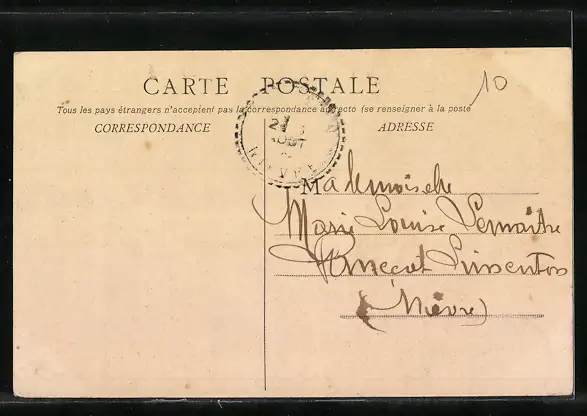 10
CARTE POSTALE
Tous les pays étrangers n'acceptent pas la correspondance au recto (se renseigner à la poste
CORRESPONDANCE
ADRESSE
AOUT
NIEVRE
Mademoiselle
Marie Louise Lemaitre
(Nièvre)